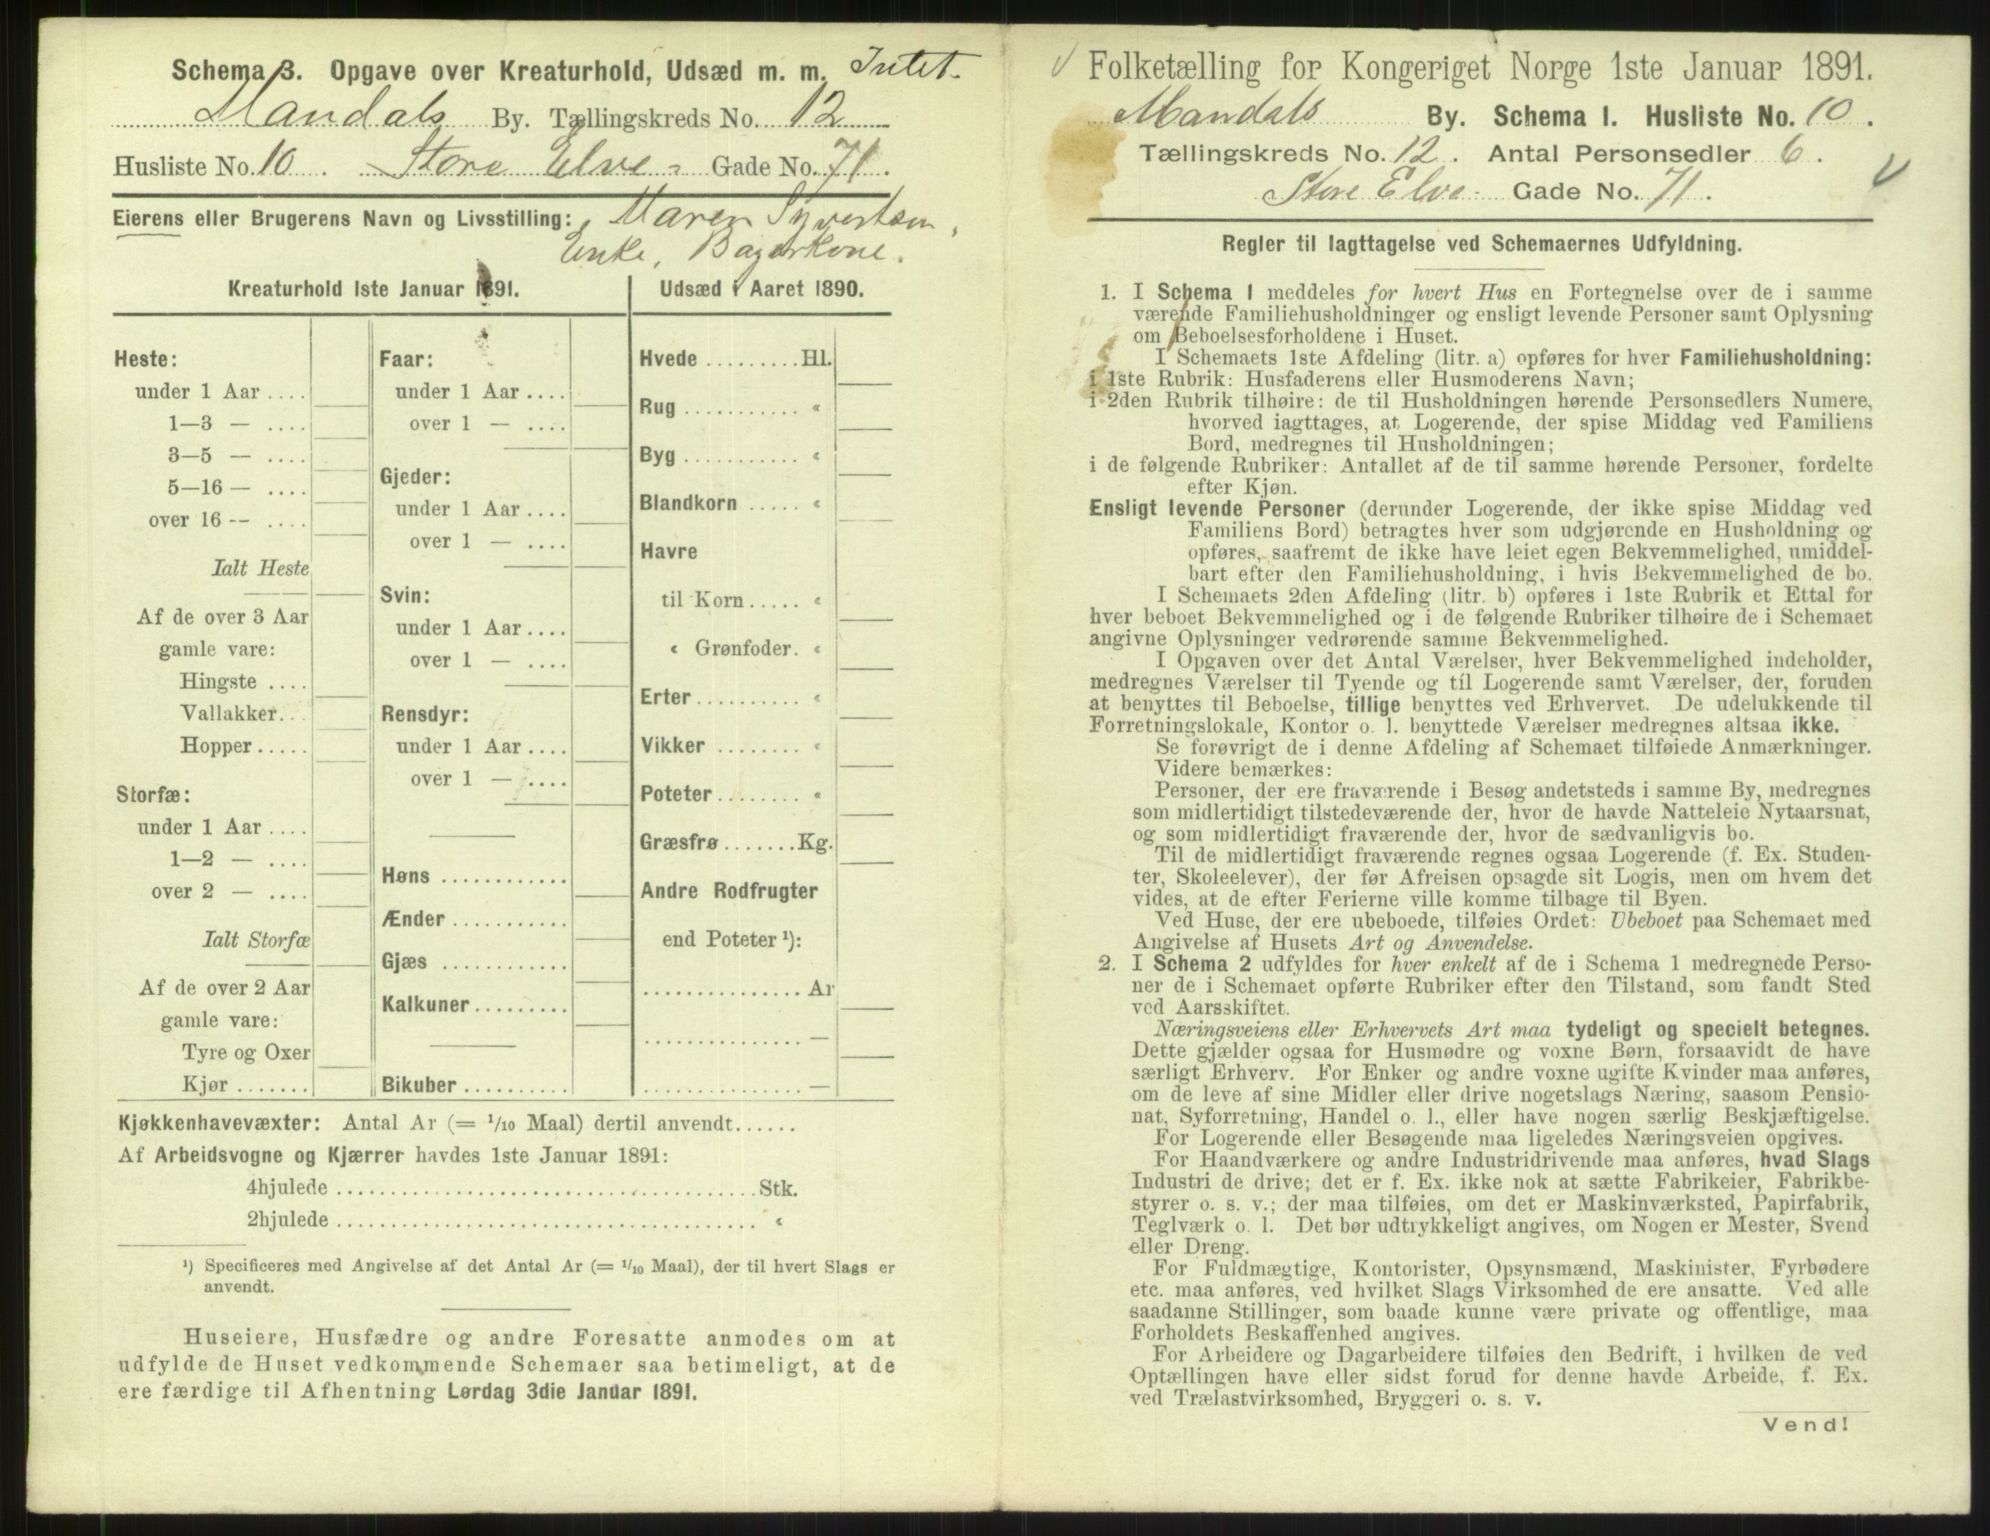 Schema 3. Opgave over Kreaturhold, Udsæd m. m. Intet.
Mandals By. Tællingskreds No. 12
Husliste No. 10. Store Elve- Gade No. 71.
Eierens eller Brugerens Navn og Livsstilling: Maren Syvertsen,
Enke, Bagerkone.
Kreaturhold 1ste Januar 1891.
Heste:
under 1 Aar ....
1—3 — ....
3—5 — ....
5—16 — ....
over 16 -- ....
Ialt Heste
Af de over 3 Aar
gamle vare:
Hingste ....
Vallakker...
Hopper.....
Storfæ:
under 1 Aar ....
1—2 — ....
over 2 — ....
Ialt Storfæ
Af de over 2 Aar
gamle vare:
Tyre og Oxer
Kjør .......
Faar:
under 1 Aar ....
over 1 — ....
Gjeder:
under 1 Aar ....
over 1 — ....
Svin:
under 1 Aar ....
over 1 — ....
Rensdyr:
under 1 Aar ....
over 1 — ....
Høns ............
Ænder ...........
Gjæs ............
Kalkuner .........
Bikuber ..........
Udsæd i Aaret 1890.
Hvede ......... Hl.
Rug ........... «
Byg ........... «
Blandkorn ..... «
Havre
til Korn ..... «
« Grønfoder. «
Erter .......... «
Vikker ......... «
Poteter ........ «
Græsfrø ....... Kg.
Andre Rodfrugter
end Poteter ¹):
............... Ar
............... —
............... —
Kjøkkenhavevæxter: Antal Ar (= 1/10 Maal) dertil anvendt......
Af Arbeidsvogne og Kjærrer havdes 1ste Januar 1891:
4hjulede ........................................ Stk.
2hjulede ........................................ «
¹) Specificeres med Angivelse af det Antal Ar (= 1/10 Maal), der til hvert Slags er
anvendt.
Huseiere, Husfædre og andre Foresatte anmodes om at
udfylde de Huset vedkommende Schemaer saa betimeligt, at de
ere færdige til Afhentning Lørdag 3die Januar 1891.
Folketælling for Kongeriget Norge 1ste Januar 1891.
Mandals By. Schema I. Husliste No. 10.
Tællingskreds No. 12. Antal Personsedler 6.
Store Elve- Gade No. 71.
Regler til Iagttagelse ved Schemaernes Udfyldning.
1. I Schema I meddeles for hvert Hus en Fortegnelse over de i samme
værende Familiehusholdninger og ensligt levende Personer samt Oplysning
om Beboelsesforholdene i Huset.
I Schemaets 1ste Afdeling (litr. a) opføres for hver Familiehusholdning:
i 1ste Rubrik: Husfaderens eller Husmoderens Navn;
i 2den Rubrik tilhøire: de til Husholdningen hørende Personsedlers Numere,
hvorved iagttages, at Logerende, der spise Middag ved Familiens
Bord, medregnes til Husholdningen;
i de følgende Rubriker: Antallet af de til samme hørende Personer, fordelte
efter Kjøn.
Ensligt levende Personer (derunder Logerende, der ikke spise Middag ved
Familiens Bord) betragtes hver som udgjørende en Husholdning og
opføres, saafremt de ikke have leiet egen Bekvemmelighed, umiddel-
bart efter den Familiehusholdning, i hvis Bekvemmelighed de bo.
I Schemaets 2den Afdeling (litr. b) opføres i 1ste Rubrik et Ettal for
hver beboet Bekvemmelighed og i de følgende Rubriker tilhøire de i Schemaet
angivne Oplysninger vedrørende samme Bekvemmelighed.
I Opgaven over det Antal Værelser, hver Bekvemmelighed indeholder,
medregnes Værelser til Tyende og til Logerende samt Værelser, der, foruden
at benyttes til Beboelse, tillige benyttes ved Erhvervet. De udelukkende til
Forretningslokale, Kontor o. l. benyttede Værelser medregnes altsaa ikke.
Se forøvrigt de i denne Afdeling af Schemaet tilføiede Anmærkninger.
Videre bemærkes:
Personer, der ere fraværende i Besøg andetsteds i samme By, medregnes
som midlertidigt tilstedeværende der, hvor de havde Natteleie Nytaarsnat,
og som midlertidigt fraværende der, hvor de sædvanligvis bo.
Til de midlertidigt fraværende regnes ogsaa Logerende (f. Ex. Studen-
ter, Skoleelever), der før Afreisen opsagde sit Logis, men om hvem det
vides, at de efter Ferierne ville komme tilbage til Byen.
Ved Huse, der ere ubeboede, tilføies Ordet: Ubeboet paa Schemaet med
Angivelse af Husets Art og Anvendelse.
2. I Schema 2 udfyldes for hver enkelt af de i Schema 1 medregnede Perso-
ner de i Schemaet opførte Rubriker efter den Tilstand, som fandt Sted
ved Aarsskiftet.
Næringsveiens eller Erhvervets Art maa tydeligt og specielt betegnes.
Dette gjælder ogsaa for Husmødre og voxne Børn, forsaavidt de have
særligt Erhverv. For Enker og andre voxne ugifte Kvinder maa anføres,
om de leve af sine Midler eller drive nogetslags Næring, saasom Pensio-
nat, Syforretning, Handel o. l., eller have nogen særlig Beskjæftigelse.
For Logerende eller Besøgende maa ligeledes Næringsveien opgives.
For Haandværkere og andre Industridrivende maa anføres, hvad Slags
Industri de drive; det er f. Ex. ikke nok at sætte Fabrikeier, Fabrikbe-
styrer o. s. v.; der maa tilføies, om det er Maskinværksted, Papirfabrik,
Teglværk o. l. Det bør udtrykkeligt angives, om Nogen er Mester, Svend
eller Dreng.
For Fuldmægtige, Kontorister, Opsynsmænd, Maskinister, Fyrbødere
etc. maa anføres, ved hvilket Slags Virksomhed de ere ansatte. Ved alle
saadanne Stillinger, som baade kunne være private og offentlige, maa
Forholdets Beskaffenhed angives.
For Arbeidere og Dagarbeidere tilføies den Bedrift, i hvilken de ved
Optællingen have eller sidst forud for denne havde Arbeide, f. Ex.
ved Trælastvirksomhed, Bryggeri o. s. v.
Vend!